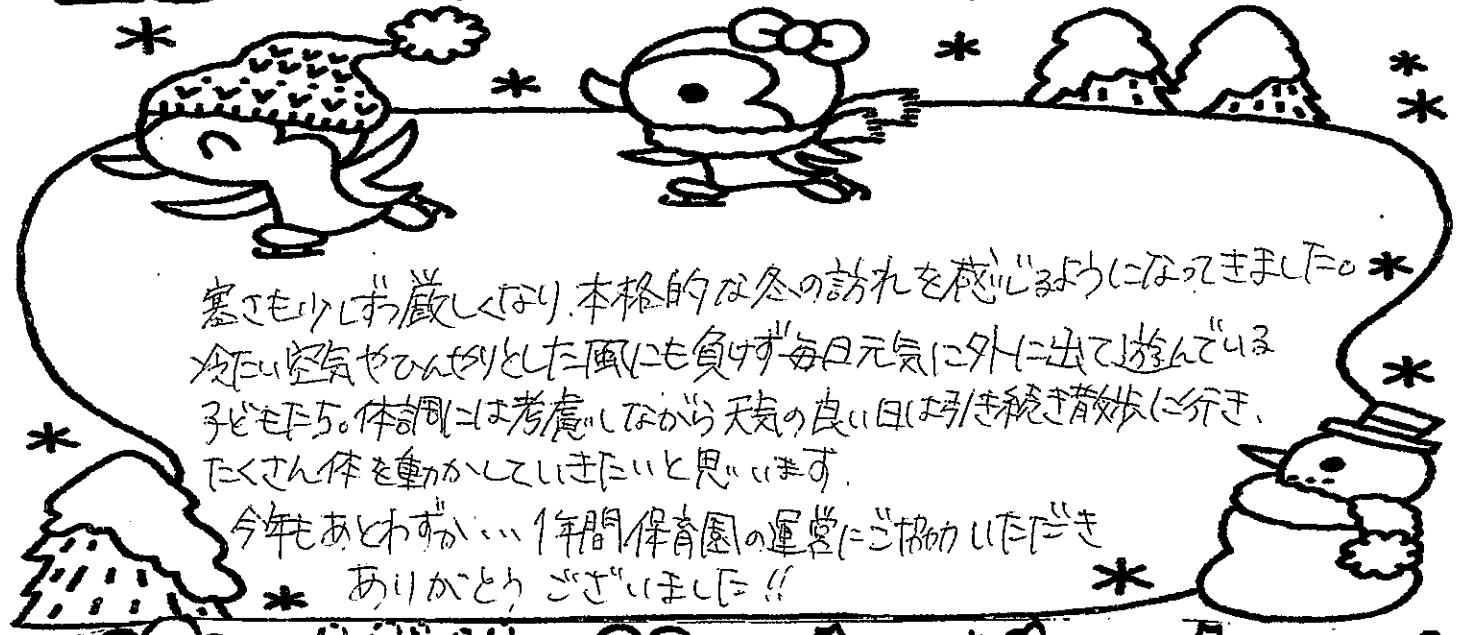 寒さも少しずつ厳しくなり、本格的な冬の訪れを感じるようになってきました。
冷たい空気やひんやりとした風にも負けず毎日元気に外に出て遊んでいる
子どもたち。体調には考慮しながら天気の良い日は引き続き散歩に行き、
たくさん体を動かしていきたいと思います.
今年もあとわずか… 1年間保育園の運営にご協力いただき
ありがとうございました!!